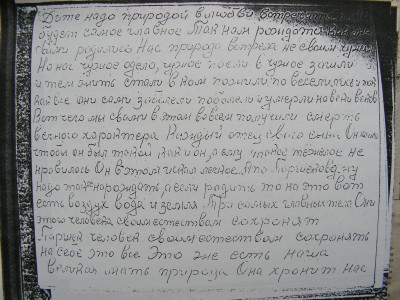 Дите надо природой в любви встре
будет самое главное Так нам рождатся
сами родились Нас природа встреть не своим чужим
На нас чужое одело, чужое поели в чужое зашли
и тем жить стали в нем пожили повеселились и
как все они сами заболели поболели и умерли на веки веков
Вот чего мы своим в этом во всем получили смерть
вечного характера Каждый отец своего сына Он
чтобы он был такой как и он, а ему такое тяжелое не
нравилось Он в этом искал легкое. А по Паршековому
надо так нарождать а если родить то на это вот
есть воздух вода и земля Три самых главных тел Они
этого человека своим естеством сохранят
Паршек человек своим естеством сохранять
на себе это все Это же есть наша
великая мать природа Она хронит нас